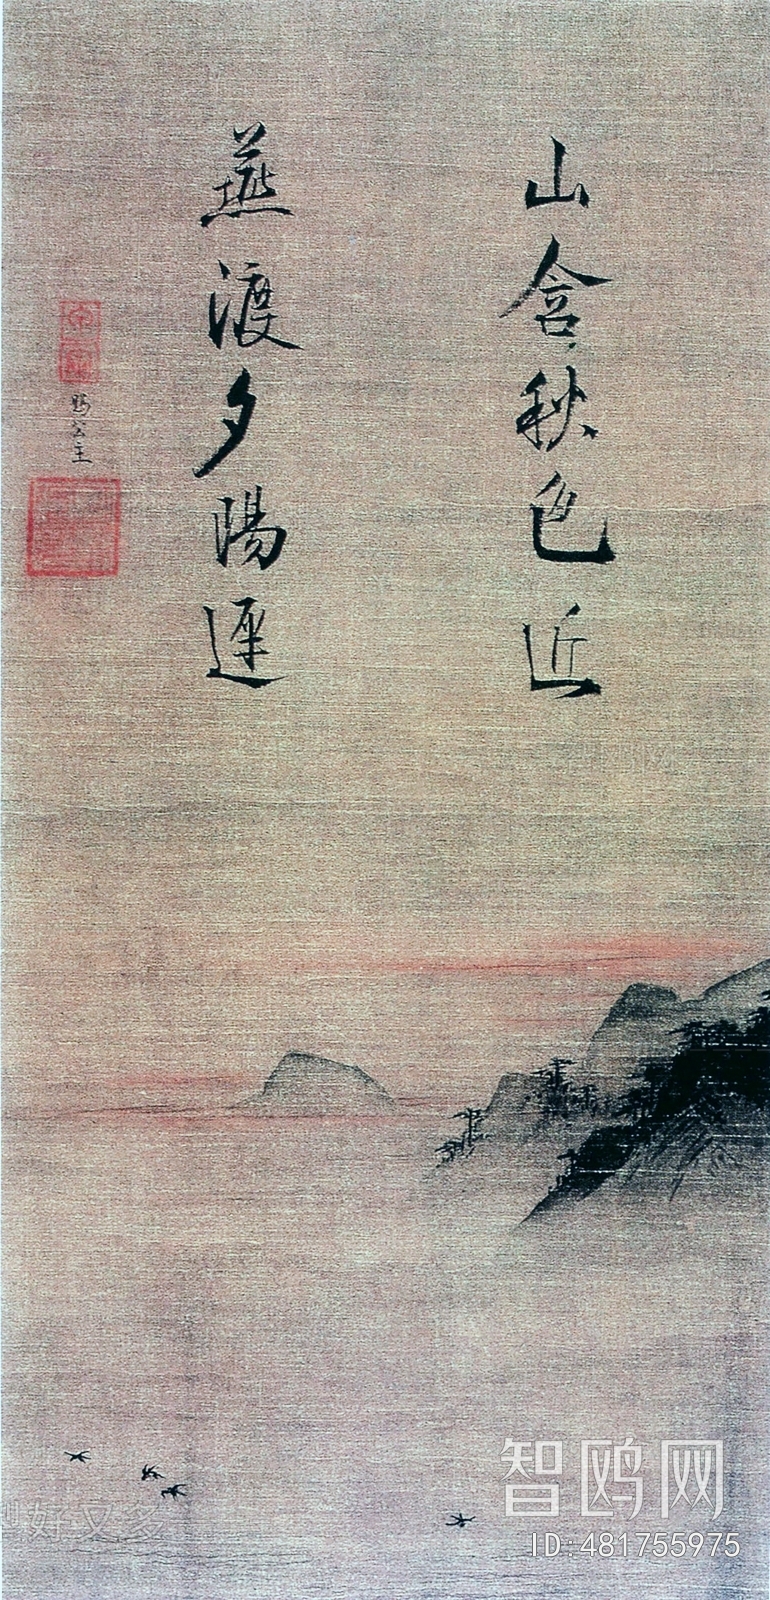 山含秋色近
燕渡夕陽遲
賜公主
智鸥网
ID:481755975
好又多